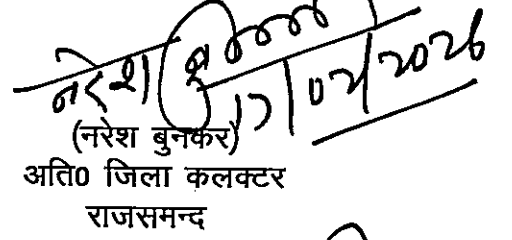 नरेश
17/02/2026
(नरेश बुनकर)
अति0 जिला कलक्टर
राजसमन्द